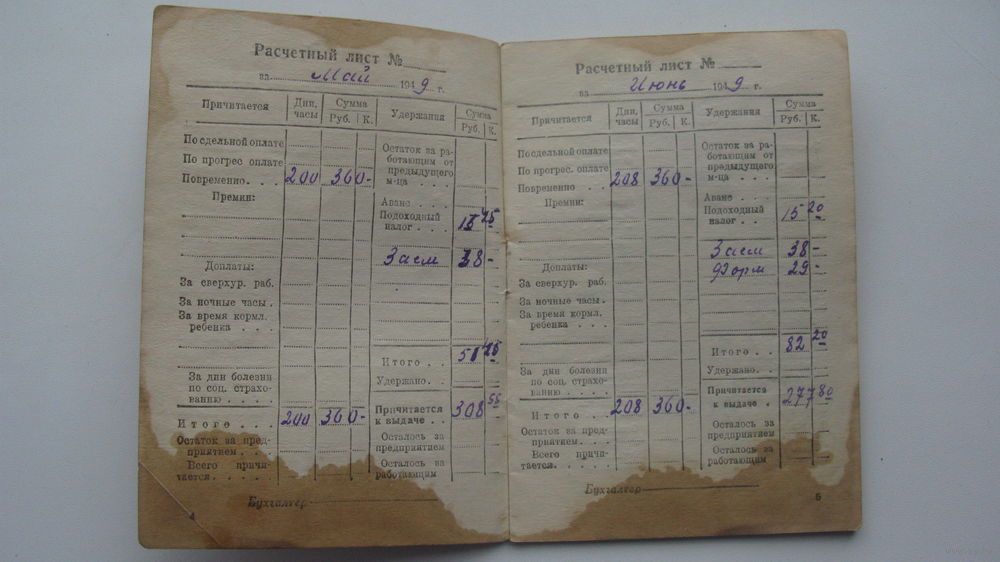 Расчетный лист №
за Май 1949 г.
Причитается Дни, часы Сумма Руб. К. Удержания Сумма Руб. К.
По сдельной оплате
По прогрес. оплате
Повременно . . . 200 360 -
Остаток за ра-
ботающим от
предыдущего
м-ца . . . .
Премии:
Аванс . . . .
Подоходный
налог . . . 15
Заем 38 -
Доплаты:
За сверхур. раб.
За ночные часы .
За время кормл.
ребенка . . . .
Итого . .
Удержано . .
За дни болезни
по соц. страхо-
ванию . . . .
Итого . . . 200 360 -
Причитается
к выдаче . . 308
Остаток за пред-
приятием . . .
Всего причи-
тается . . . .
Осталось за
предприятием
Осталось за
работающим
Бухгалтер
4
Расчетный лист №
за Июнь 1949 г.
Причитается Дни, часы Сумма Руб. К. Удержания Сумма Руб. К.
По сдельной оплате
По прогрес. оплате
Повременно . . . 208 360 -
Остаток за ра-
ботающим от
предыдущего
м-ца . . . .
Премии:
Аванс . . . .
Подоходный
налог . . . 15 20
Заем 38 -
Форм 29 -
Доплаты:
За сверхур. раб.
За ночные часы .
За время кормл.
ребенка . . . .
Итого . . 82 20
Удержано . .
За дни болезни
по соц. страхо-
ванию . . . .
Итого . . . 208 360 -
Причитается
к выдаче . 277 80
Остаток за пред-
приятием . . .
Всего причи-
тается . . . .
Осталось за
предприятием
Осталось за
работающим
Бухгалтер
5